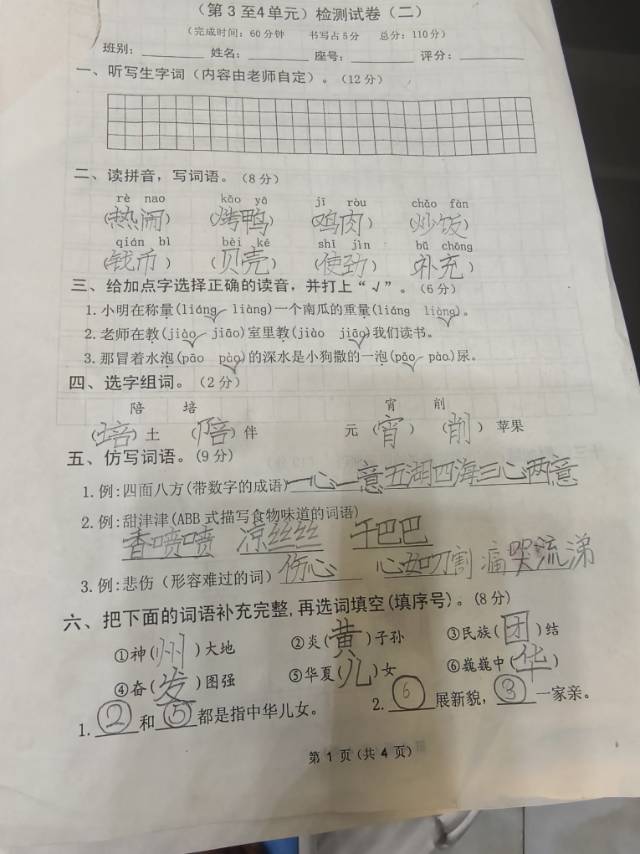 （第3至4单元）检测试卷（二）
（完成时间：60分钟 书写占5分 总分：110分）
班别：________ 姓名：________ 座号：________ 评分：________
一、听写生字词（内容由老师自定）。（12分）
二、读拼音，写词语。（8分）
rè nao kǎo yā jī ròu chǎo fàn
（热闹） （烤鸭） （鸡肉） （炒饭）
qián bì bèi ké shǐ jìn bǔ chōng
（钱币） （贝壳） （使劲） （补充）
三、给加点字选择正确的读音，并打上“√”。（6分）
1. 小明在称量(liáng√ liàng)一个南瓜的重量(liáng liàng√)。
2. 老师在教(jiào√ jiāo)室里教(jiào jiāo√)我们读书。
3. 那冒着水泡(pāo pào√)的深水是小狗撒的一泡(pāo√ pào)尿。
四、选字组词。（2分）
陪 培 宵 削
（培）土 （陪）伴 元（宵） （削）苹果
五、仿写词语。（9分）
1. 例：四面八方（带数字的成语）一心一意 五湖四海 三心两意
2. 例：甜津津（ABB式描写食物味道的词语）
香喷喷 凉丝丝 干巴巴
3. 例：悲伤（形容难过的词） 伤心 心如刀割 痛哭流涕
六、把下面的词语补充完整，再选词填空（填序号）。（8分）
①神（州）大地 ②炎（黄）子孙 ③民族（团）结
④奋（发）图强 ⑤华夏（儿）女 ⑥巍巍中（华）
1. ②和⑤都是指中华儿女。 2. ⑥展新貌，③一家亲。
第 1 页（共 4 页）